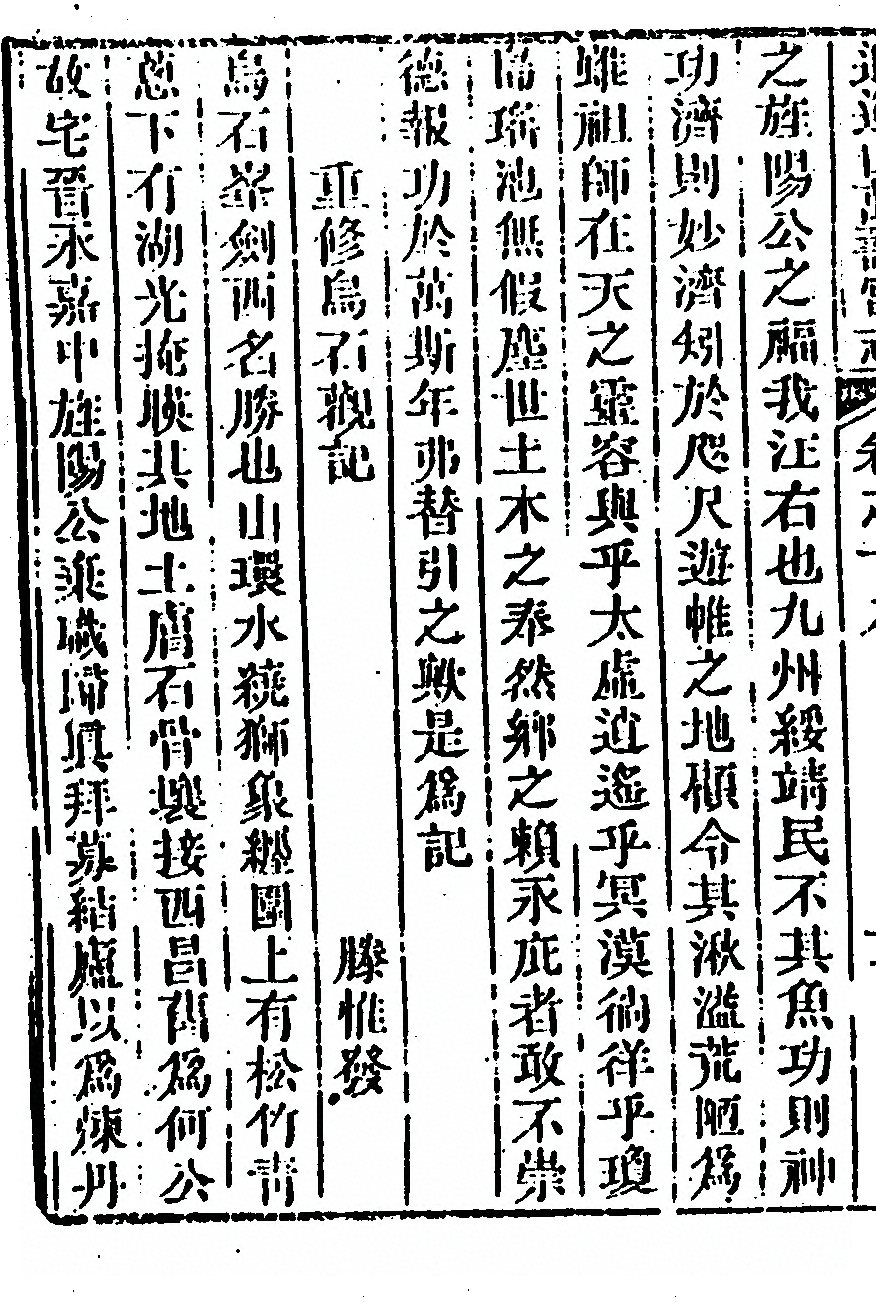 逍遙山萬壽宮志 卷之十八
之旌陽公之福我江右也九州綏靖民不其魚功則神
功濟則妙濟矧於咫尺遊帷之地頓令其湫溢荒陋爲
雖祖師在天之靈容與乎太虛逍遙乎冥漠徜徉乎瓊
島瑤池無假塵世土木之奉然鄉之賴永庇者敢不崇
德報功於萬斯年弗替引之歟是爲記
重修烏石觀記 滕惟發
烏石峯劍西名勝也山環水繞獅象纏圍上有松竹青
葱下有湖光掩映其地土膚石骨壤接西昌舊爲何公
故宅晉永嘉中旌陽公棄職歸眞拜墓結廬以爲煉丹